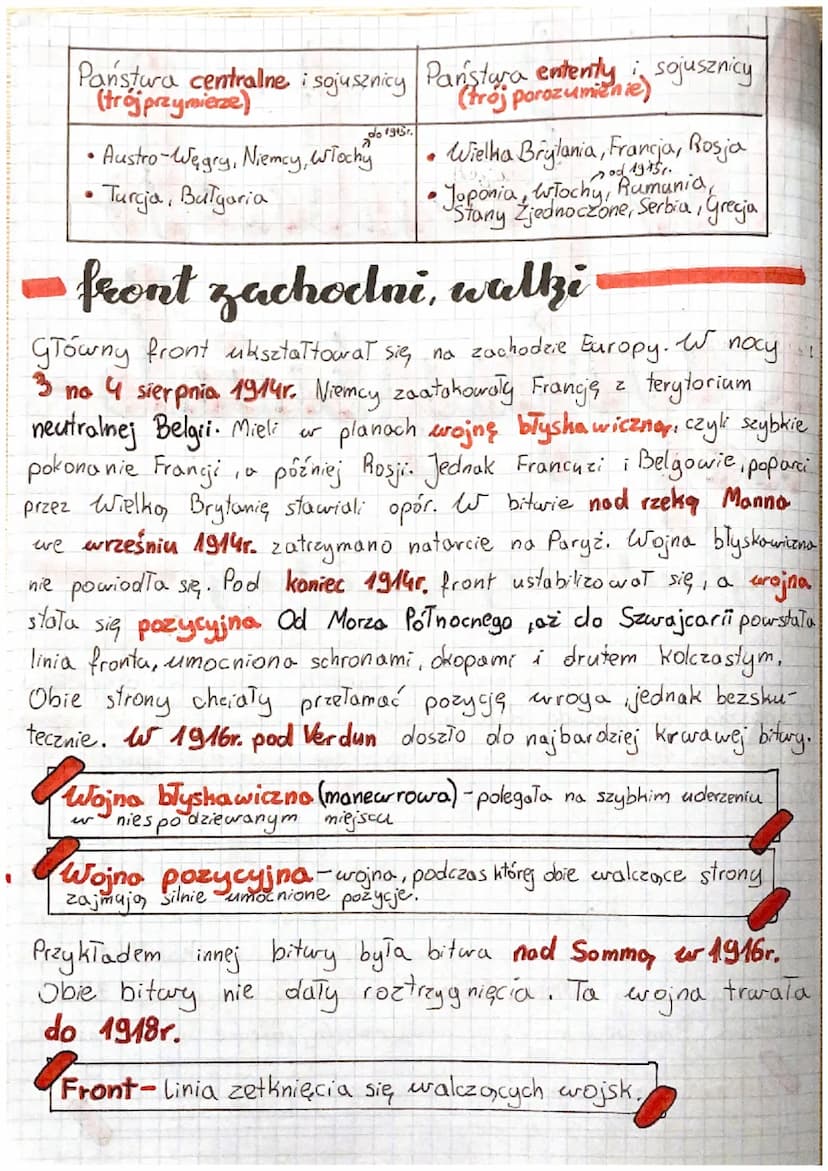 Państwa centralne i sojusznicy
(trójprzymierze)
do 1915r.
• Austro-Węgry, Niemcy, Włochy
• Turcja, Bułgaria
Państwa ententy i sojusznicy
(trój porozumienie)
• Wielka Brytania, Francja, Rosja
od 1915r.
• Japonia, Włochy, Rumunia,
Stany Zjednoczone, Serbia, Grecja
front zachodni, walki
Główny front ukształtował się na zachodzie Europy. W nocy
3 na 4 sierpnia 1914r. Niemcy zaatakowały Francję z terytorium
neutralnej Belgii. Mieli w planach wojnę błyskawiczną, czyli szybkie
pokonanie Francji, a później Rosji. Jednak Francuzi i Belgowie, poparci
przez Wielką Brytanię stawiali opór. W bitwie nad rzeką Manną
we wrześniu 1914r. zatrzymano natarcie na Paryż. Wojna błyskawiczna
nie powiodła się. Pod koniec 1914r. front ustabilizował się, a wojna
stała się pozycyjna Od Morza Północnego, aż do Szwajcarii powstała
linia frontu, umocniona schronami, okopami i drutem kolczastym.
Obie strony chciały przełamać pozycję wroga, jednak bezsku-
tecznie. W 1916r. pod Verdun doszło do najbardziej krwawej bitwy.
Wojna błyskawiczna (manewrowa) - polegała na szybkim uderzeniu
w niespodziewanym miejscu
Wojna pozycyjna - wojna, podczas której obie walczące strony
zajmują silnie umocnione pozycje.
Przykładem innej bitwy była bitwa nad Sommą w 1916r.
Obie bitwy nie dały roztrzygnięcia. Ta wojna trwała
do 1918r.
Front - linia zetknięcia się walczących wojsk.